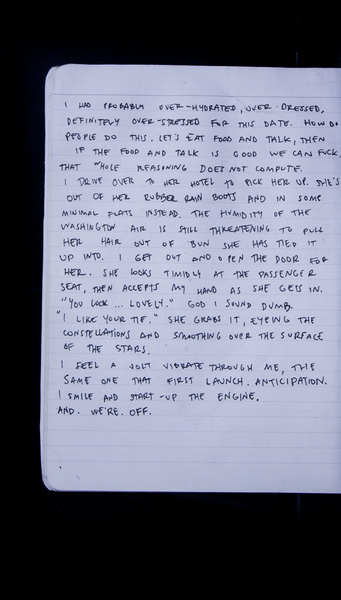 I HAD PROBABLY OVER-HYDRATED, OVER-DRESSED,
DEFINITELY OVER-STRESSED FOR THIS DATE. HOW DO
PEOPLE DO THIS. LET'S EAT FOOD AND TALK, THEN
IF THE FOOD AND TALK IS GOOD WE CAN FUCK.
THAT WHOLE REASONING DOES NOT COMPUTE.
I DRIVE OVER TO HER HOTEL TO PICK HER UP. SHE'S
OUT OF HER RUBBER RAIN BOOTS AND IN SOME
MINIMAL FLATS INSTEAD. THE HUMIDITY OF THE
WASHINGTON AIR IS STILL THREATENING TO PULL
HER HAIR OUT OF BUN SHE HAS TIED IT
UP INTO. I GET OUT AND OPEN THE DOOR FOR
HER. SHE LOOKS TIMIDLY AT THE PASSENGER
SEAT, THEN ACCEPTS MY HAND AS SHE GETS IN.
"YOU LOOK ... LOVELY." GOD I SOUND DUMB.
"I LIKE YOUR TIE." SHE GRABS IT, EYEING THE
CONSTELLATIONS AND SMOOTHING OVER THE SURFACE
OF THE STARS.
I FEEL A VOLT VIBRATE THROUGH ME, THE
SAME ONE THAT FIRST LAUNCH. ANTICIPATION.
I SMILE AND START-UP THE ENGINE.
AND. WE'RE. OFF.